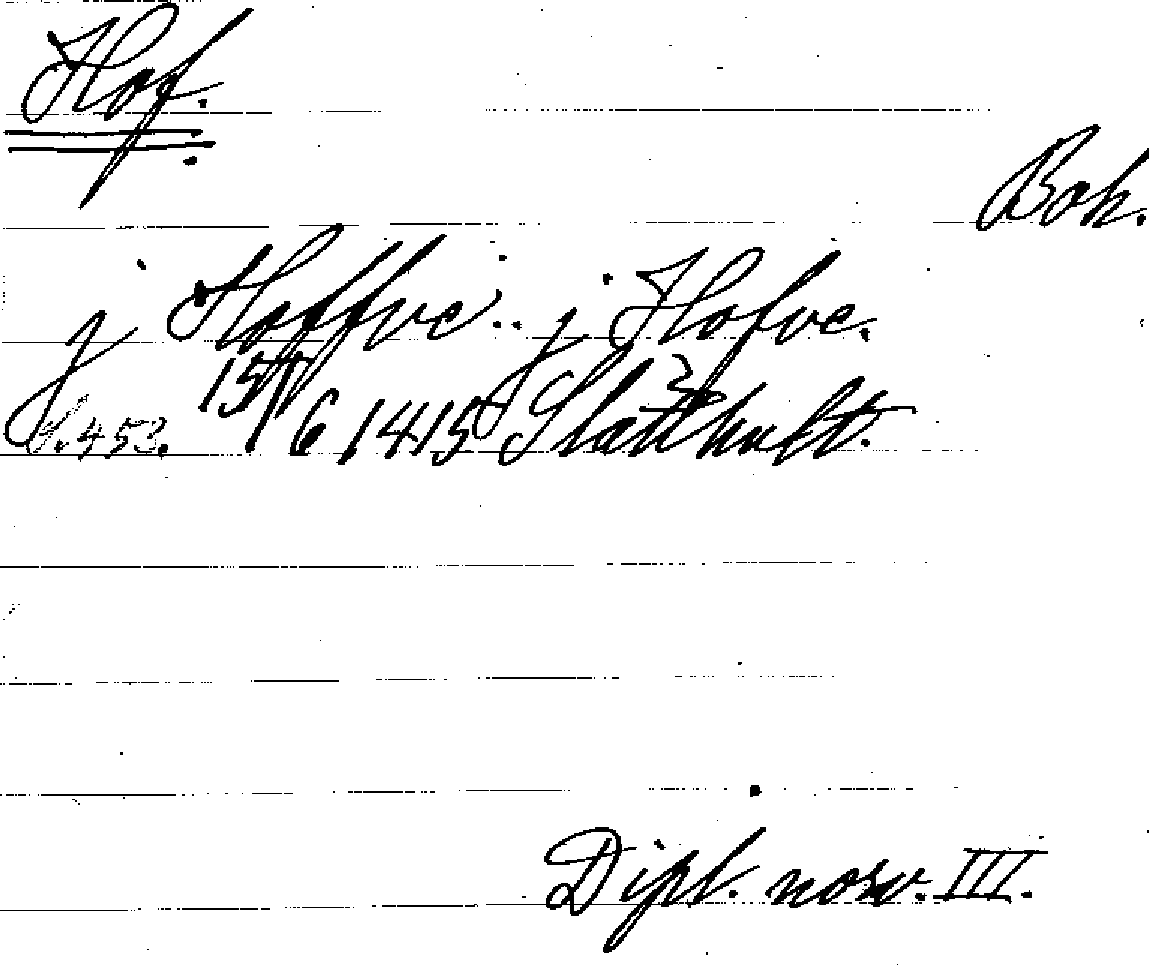 Hof.
Boh.
j Hoffve.. j Hofve.
S. 453. 15/6 1415 Slätthult.
Dipl. norv. III.